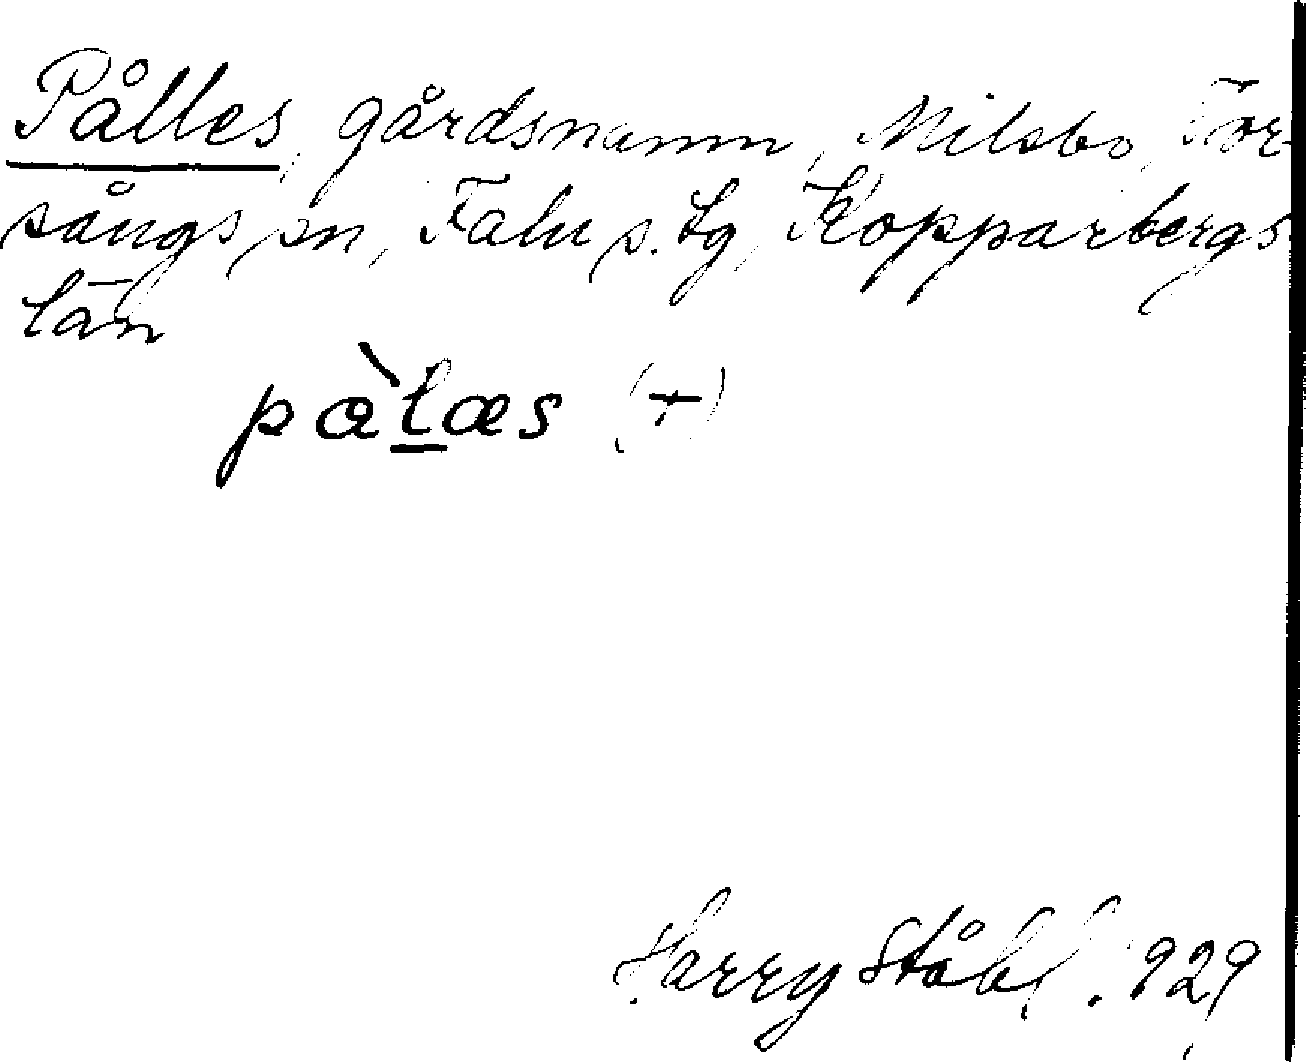 Pålles, gårdsnamn, Milsbo, Tor-
sångs sn, Falu s. tg, Kopparbergs
län
pàl̲æs (+)
Harry Ståhl. 1929